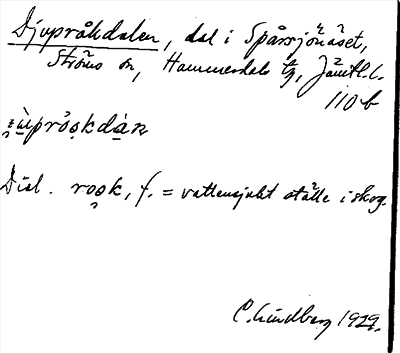 Djupråkdalen, dal i Spårsjönäset,
Ströms sn, Hammerdals tg, Jämtl. l.
110 b
Dial. rook, f. = vattensjukt ställe i skog.
C. Lindberg 1929.